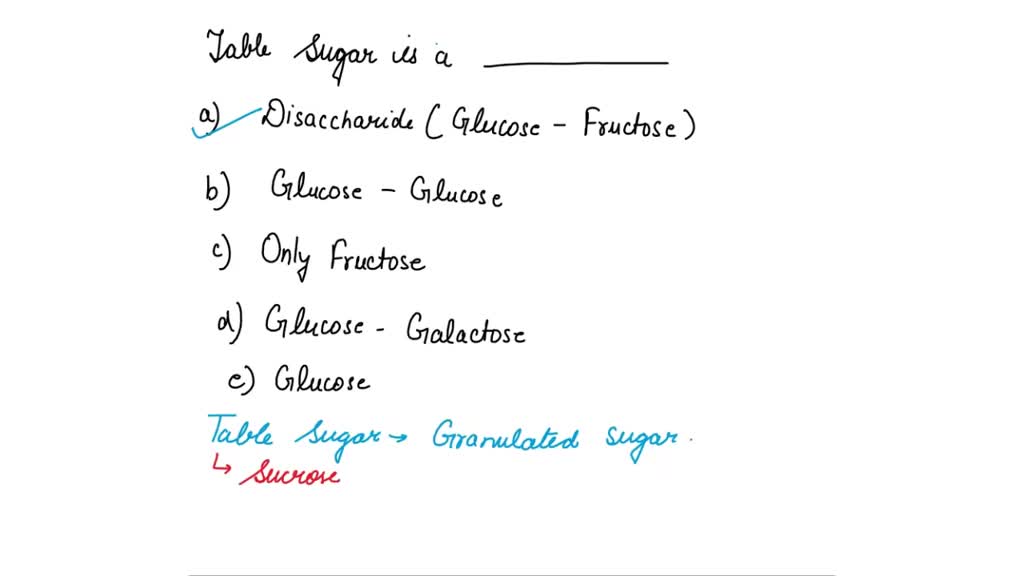 Table Sugar is a ________
a) Disaccharide (Glucose - Fructose)
b) Glucose - Glucose
c) Only Fructose
d) Glucose - Galactose
e) Glucose
Table Sugar → Granulated sugar.
↳ Sucrose